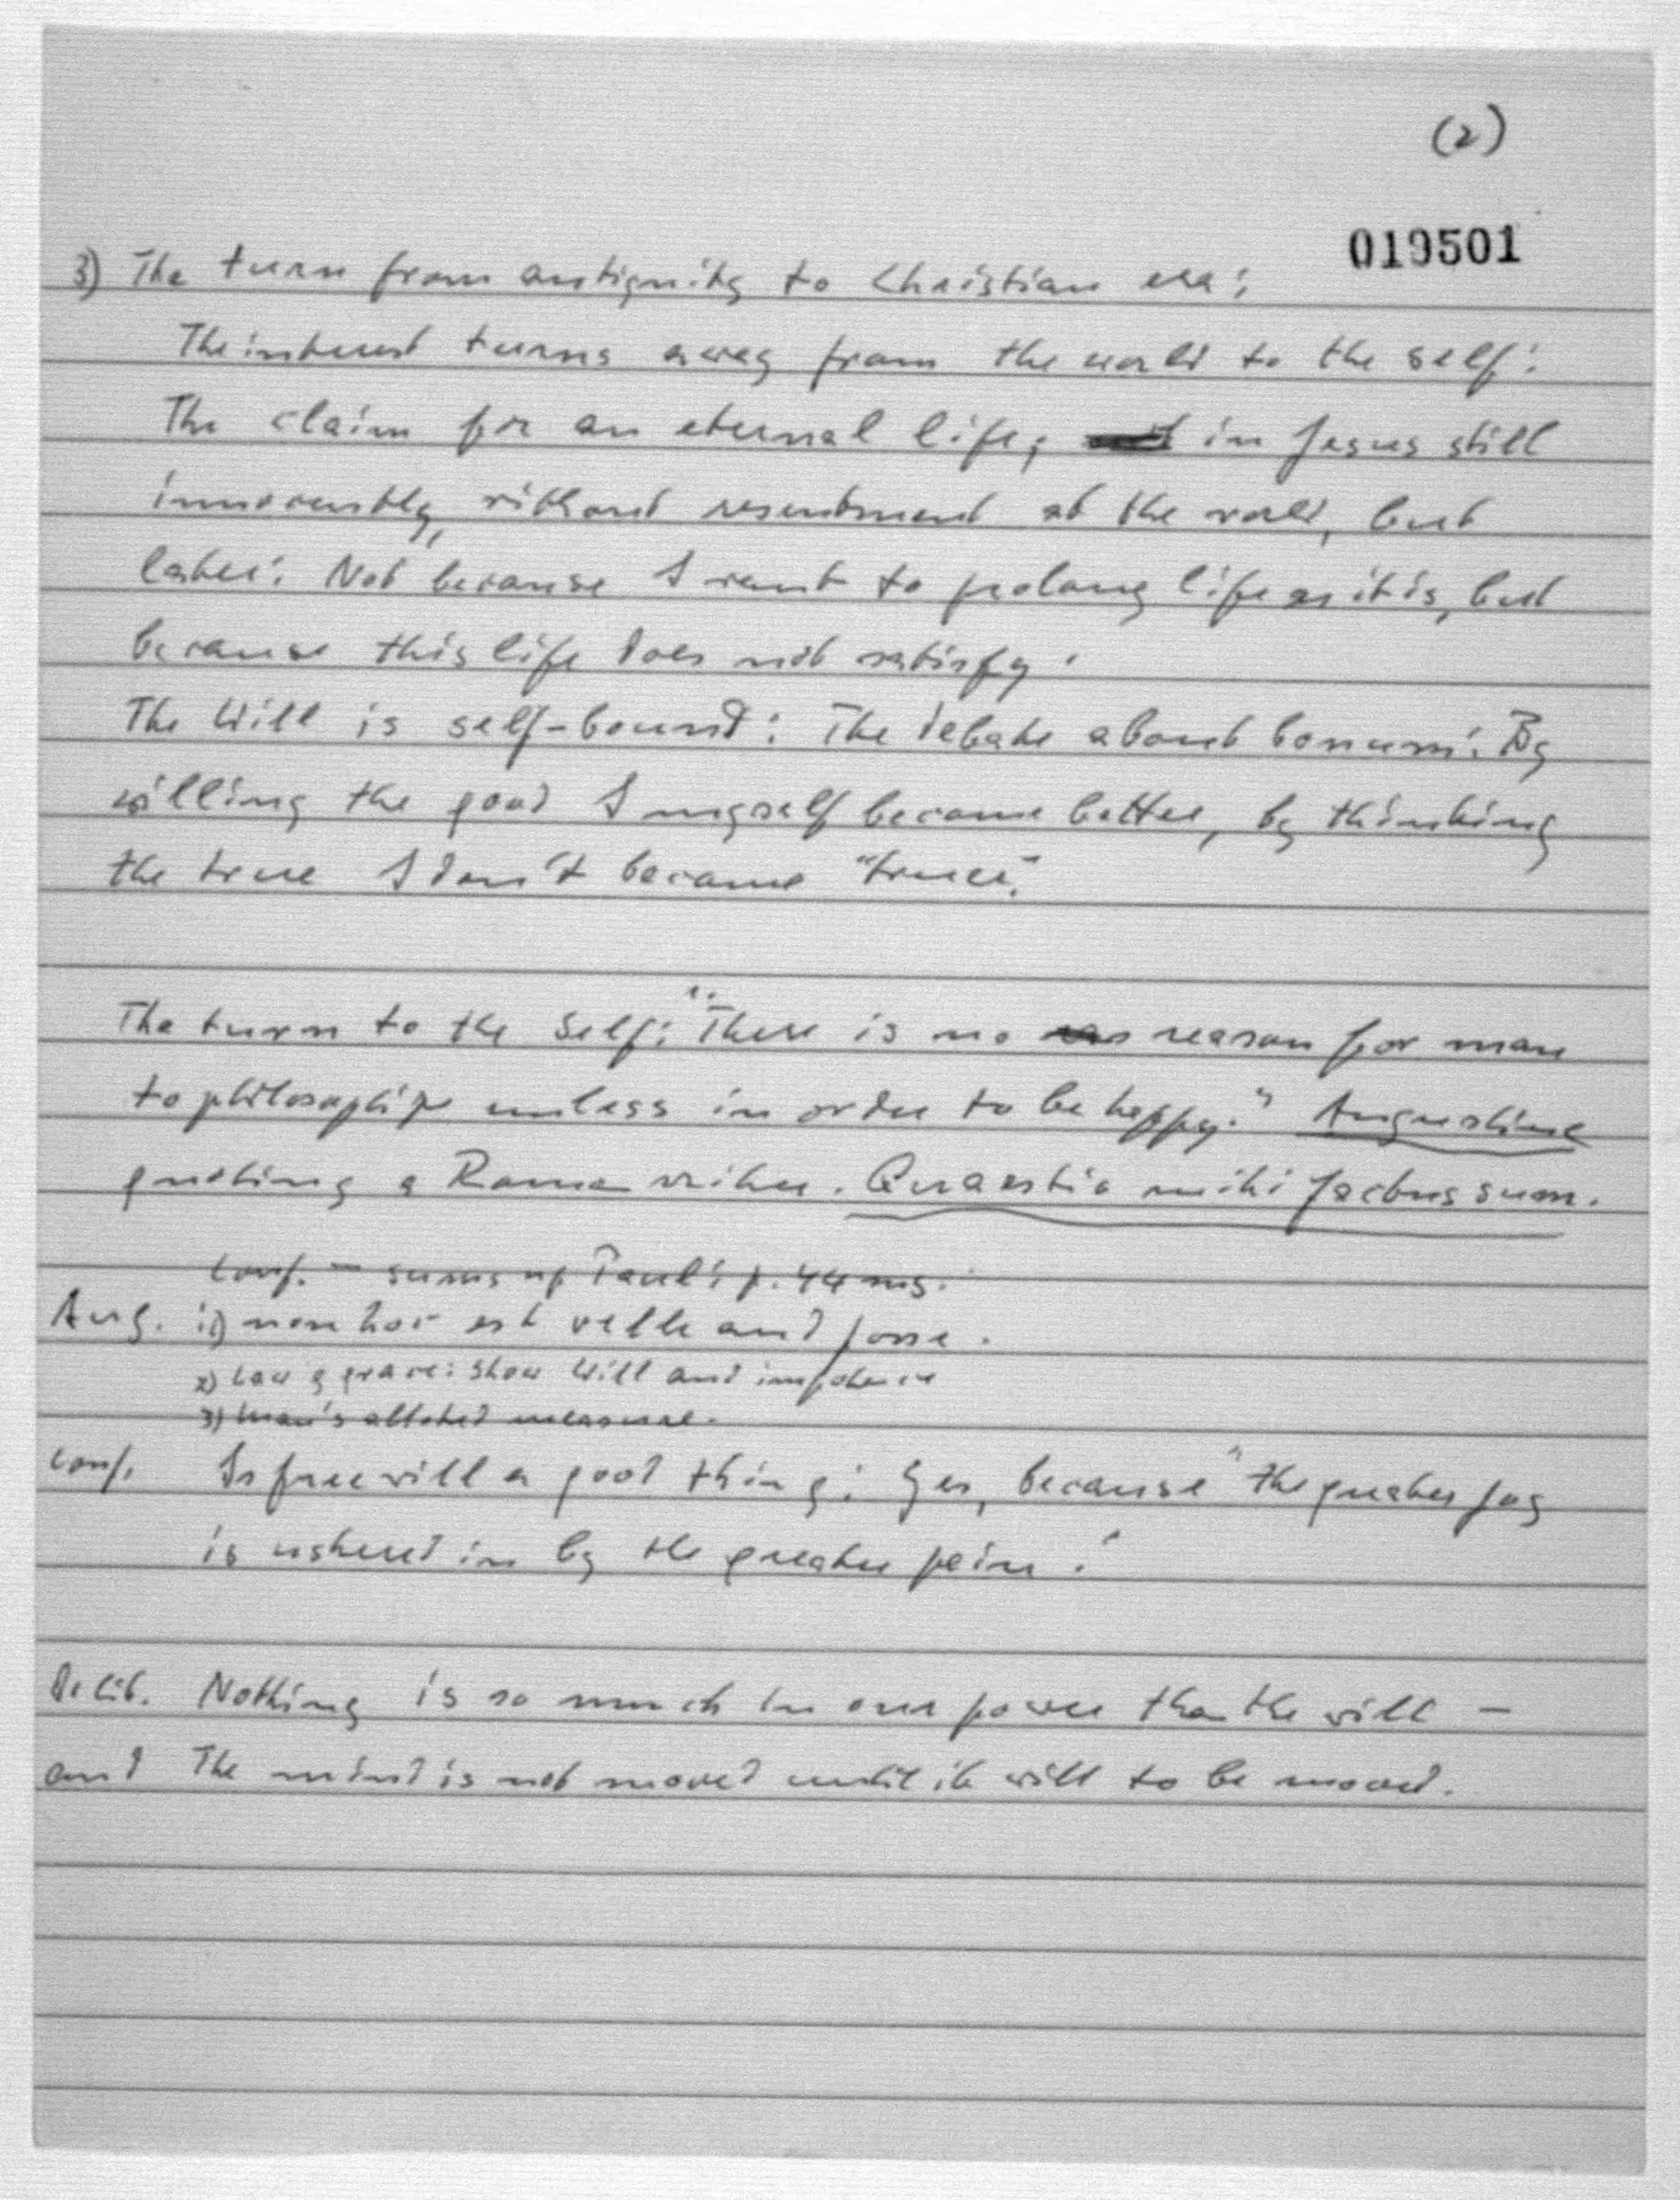 (2)
019501
3) The turn from antiquity to Christian era:
The interest turns away from the world to the self:
The claim for an eternal life; in Jesus still
innocently, without resentment at the world, but
later: Not because I want to prolong life as it is, but
because this life does not satisfy.
The Will is self-bound: The debate about bonum: By
willing the good I myself become better, by thinking
the true I don't become "truer".
The turn to the Self: "There is no reason for man
to philosophize unless in order to be happy." Augustine
quoting a Roman writer. Quaestio mihi factus sum.
Conf. – sums up Paul: p. 44 ms.
Aug. 1) non hoc est velle and posse.
2) Law & grace: show Will and impotence
3) Man's allotted measure.
Conf. Is free will a good thing: Yes, because "the greater joy
is ushered in by the greater pain."
De lib. Nothing is so much in our power than the will –
and The mind is not moved until it will to be moved.